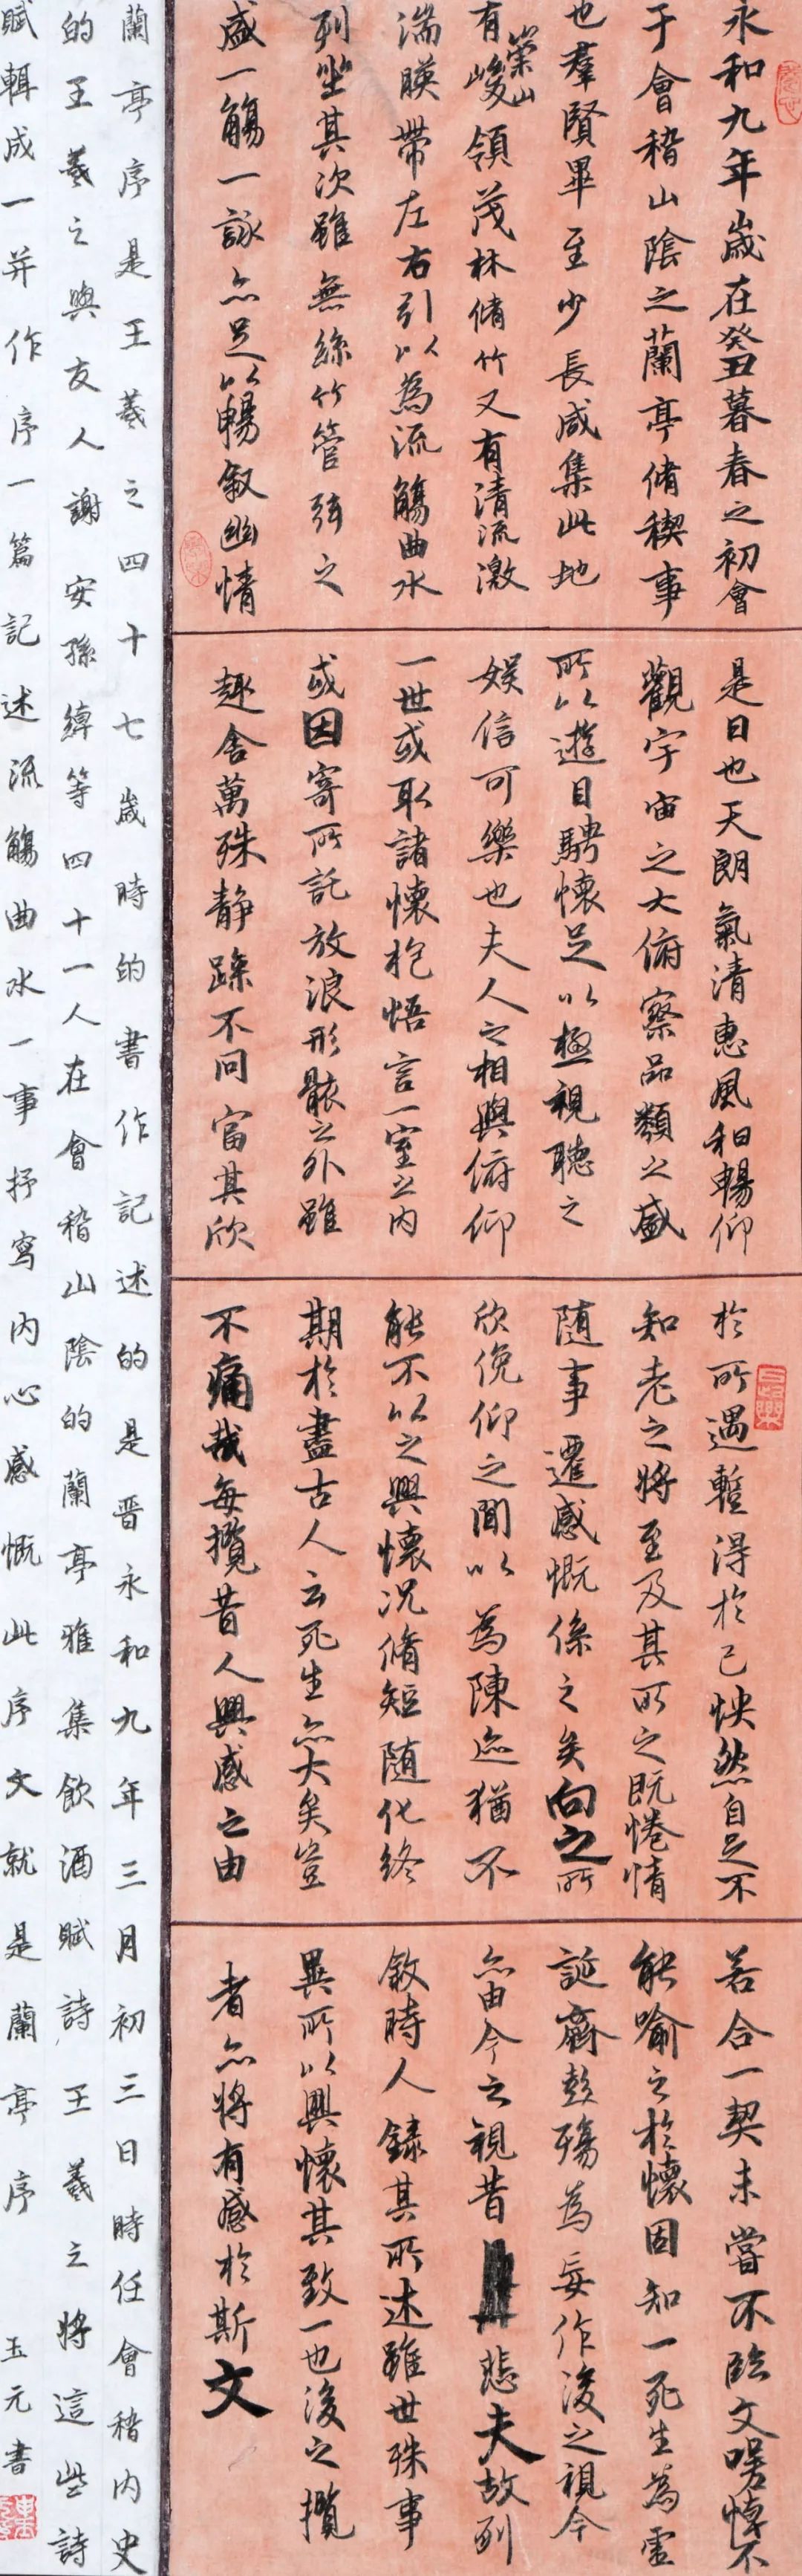 永和九年歲在癸丑暮春之初會
于會稽山陰之蘭亭脩稧事
也羣賢畢至少長咸集此地
有崇山峻領茂林脩竹又有清流激
湍暎帶左右引以為流觴曲水
列坐其次雖無絲竹管弦之
盛一觴一詠亦足以暢敘幽情
是日也天朗氣清惠風和暢仰
觀宇宙之大俯察品類之盛
所以遊目騁懷足以極視聽之
娛信可樂也夫人之相與俯仰
一世或取諸懷抱悟言一室之内
或因寄所託放浪形骸之外雖
趣舍萬殊静躁不同當其欣
於所遇蹔得於己怏然自足不
知老之將至及其所之既惓情
随事遷感慨係之矣向之所
欣俛仰之閒以為陳迹猶不
能不以之興懷况脩短随化終
期於盡古人云死生亦大矣豈
不痛哉每攬昔人興感之由
若合一契未嘗不臨文嗟悼不
能喻之於懷固知一死生為虛
誕齊彭殤為妄作後之視今
亦由今之視昔悲夫故列
敘時人錄其所述雖世殊事
異所以興懷其致一也後之攬
者亦將有感於斯文
蘭亭序是王羲之四十七歲時的書作記述的是晋永和九年三月初三日時任會稽内史
的王羲之與友人謝安孫綽等四十一人在會稽山陰的蘭亭雅集飲酒賦詩王羲之將這些詩
賦輯成一并作序一篇記述流觴曲水一事抒寫内心感慨此序文就是蘭亭序 玉元書